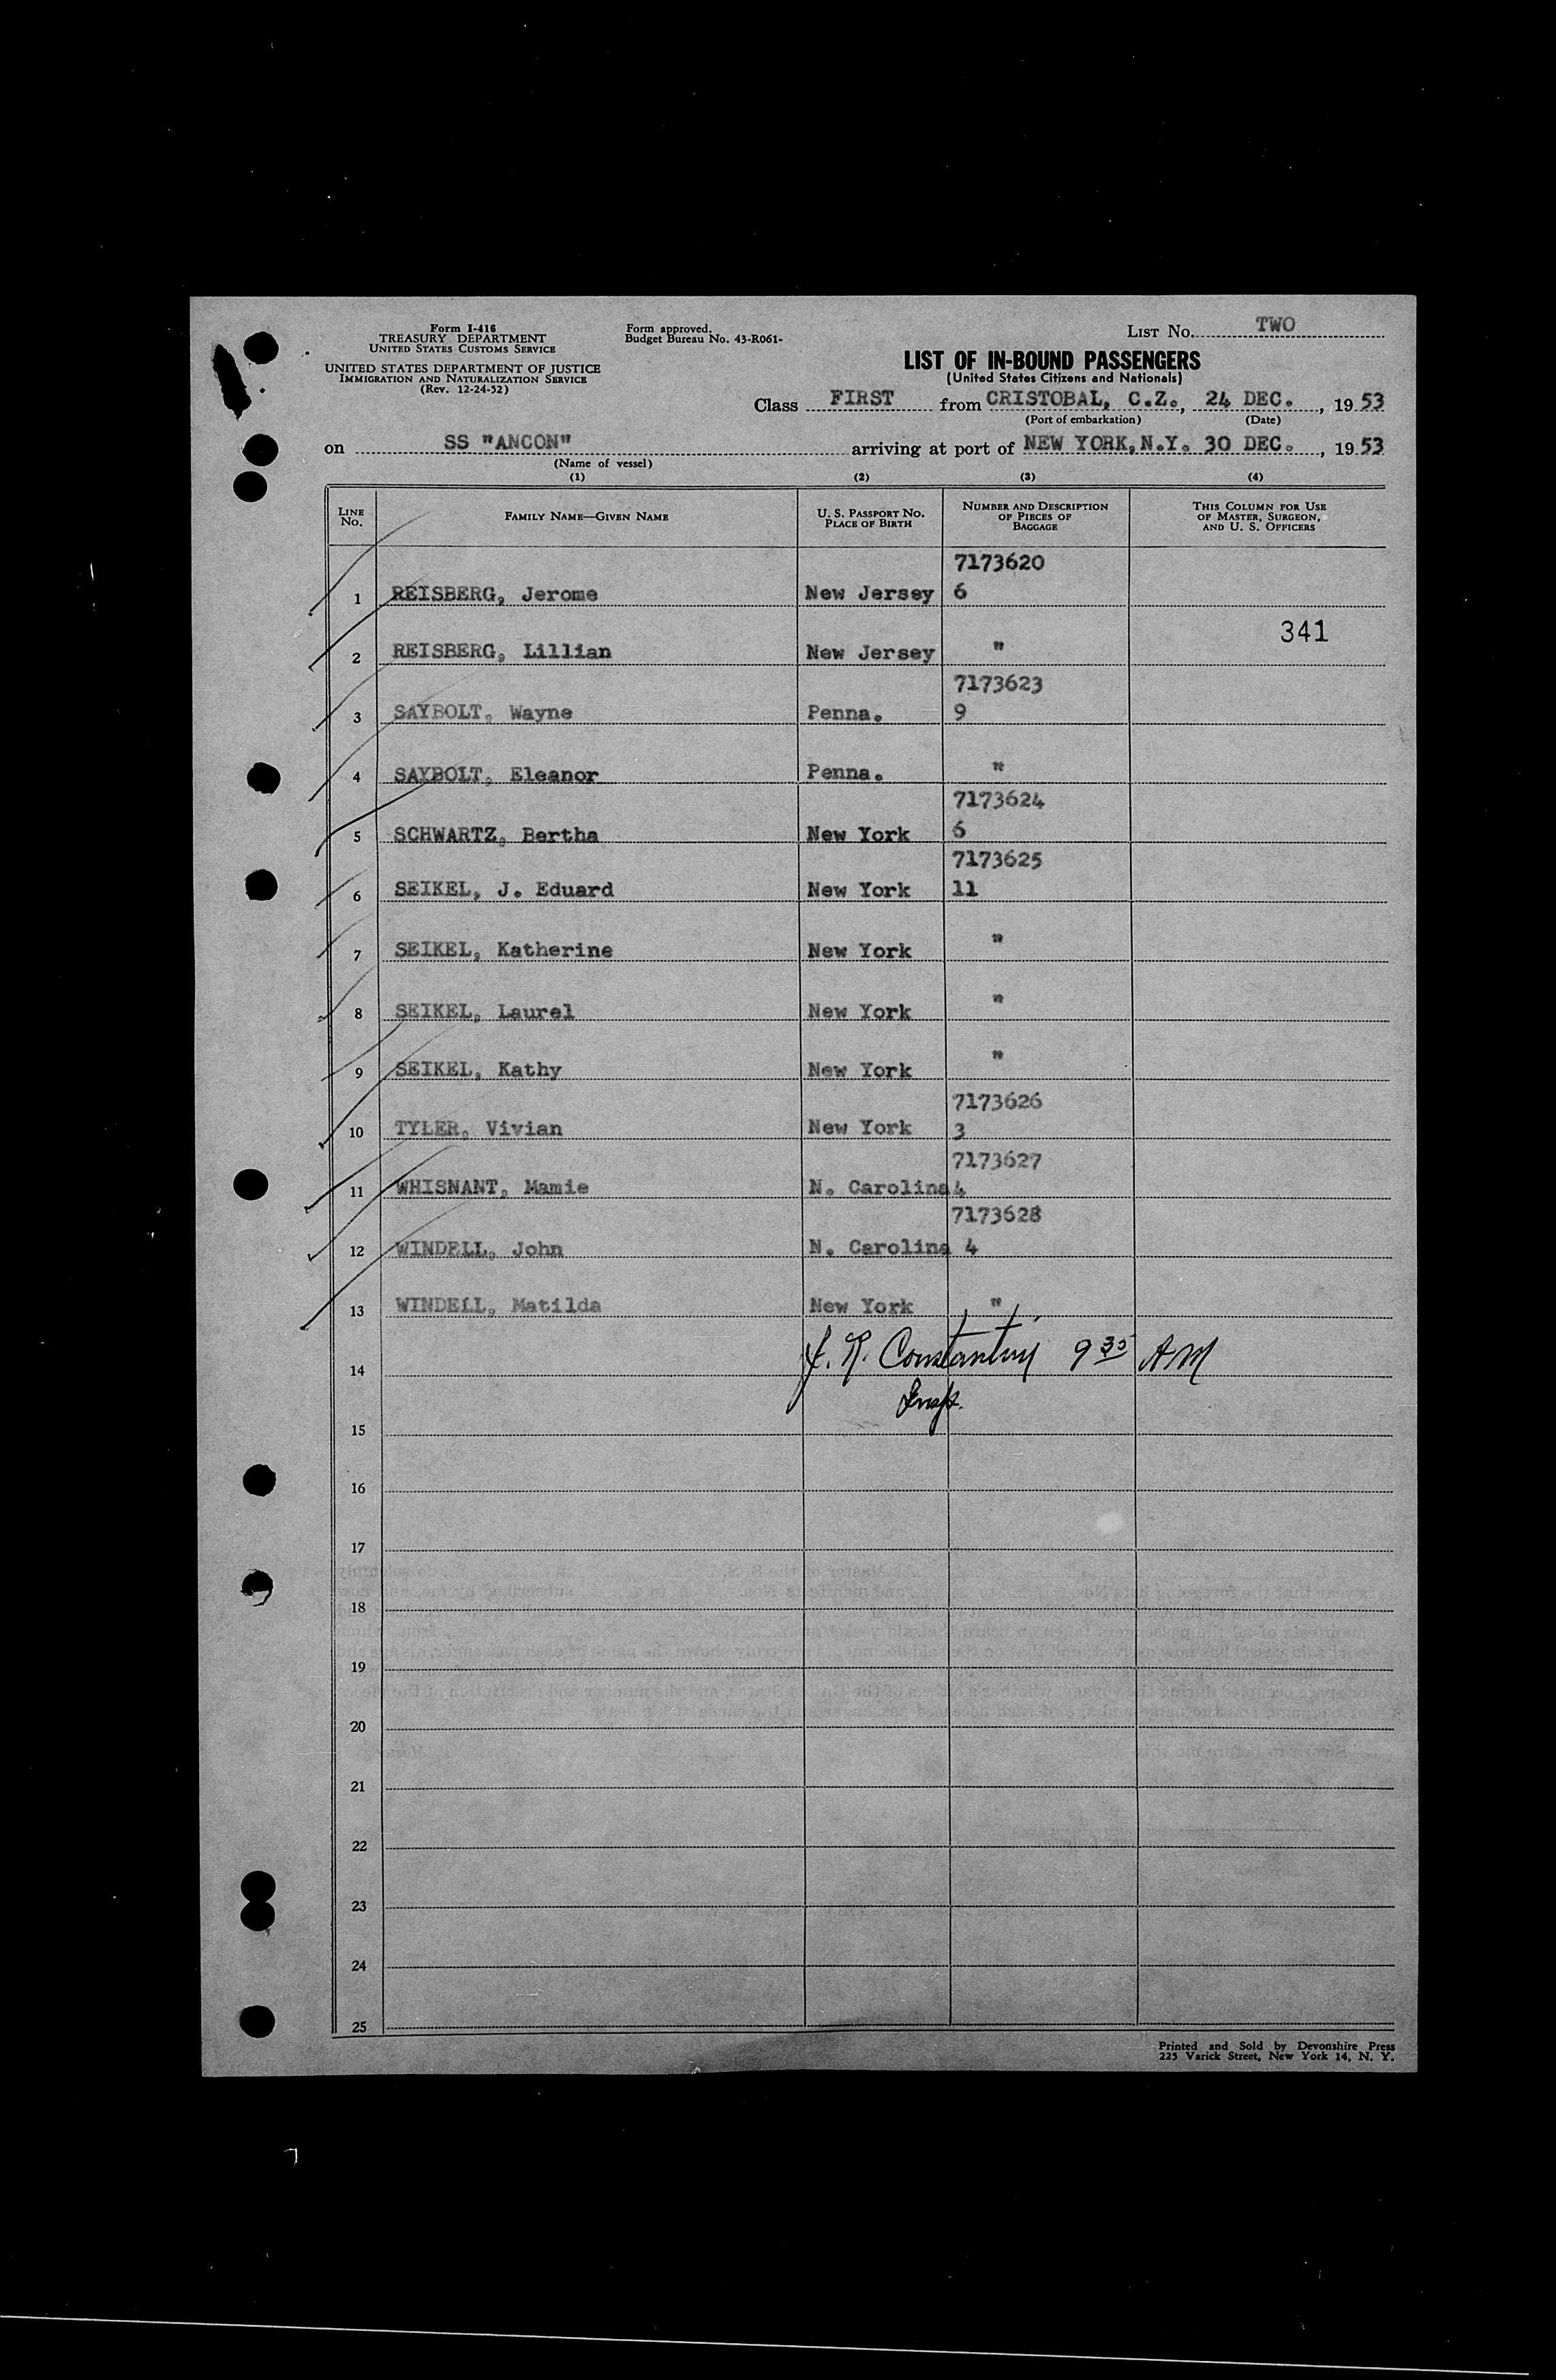 Form I-416
TREASURY DEPARTMENT
UNITED STATES CUSTOMS SERVICE
UNITED STATES DEPARTMENT OF JUSTICE
IMMIGRATION AND NATURALIZATION SERVICE
(Rev. 12-24-52)
Form approved.
Budget Bureau No. 43-R061-
LIST NO. TWO
LIST OF IN-BOUND PASSENGERS
(United States Citizens and Nationals)
Class FIRST from CRISTOBAL, C.Z., 24 DEC., 1953
(Port of embarkation) (Date)
on SS "ANCON" arriving at port of NEW YORK, N.Y. 30 DEC., 1953
(Name of vessel)
(1) (2) (3) (4)
LINE NO. FAMILY NAME—GIVEN NAME U. S. PASSPORT NO. PLACE OF BIRTH NUMBER AND DESCRIPTION OF PIECES OF BAGGAGE THIS COLUMN FOR USE OF MASTER, SURGEON, AND U. S. OFFICERS
7173620
1 REISBERG, Jerome New Jersey 6
341
2 REISBERG, Lillian New Jersey "
7173623
3 SAYBOLT, Wayne Penna. 9
4 SAYBOLT, Eleanor Penna. "
7173624
5 SCHWARTZ, Bertha New York 6
7173625
6 SEIKEL, J. Eduard New York 11
7 SEIKEL, Katherine New York "
8 SEIKEL, Laurel New York "
9 SEIKEL, Kathy New York "
7173626
10 TYLER, Vivian New York 3
7173627
11 WHISNANT, Mamie N. Carolina 4
7173628
12 WINDELL, John N. Carolina 4
13 WINDELL, Matilda New York "
14 R. 9 35 AM
Insp.
15
16
17
18
19
20
21
22
23
24
25
Printed and Sold by Devonshire Press
225 Varick Street, New York 14, N. Y.